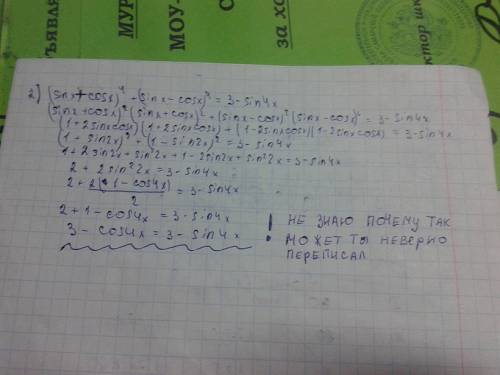 ЪЯВЛЯЕ
МУР
МОУ-
С
за хо
ктор шк
2) (sinx+cosx)⁴ + (sinx-cosx)⁴ = 3-sin4x
(sinx+cosx)²(sinx+cosx)² + (sinx-cosx)²(sinx-cosx)² = 3-sin4x
(1+2sinxcosx)(1+2sinxcosx) + (1-2sinxcosx)(1-2sinxcosx) = 3-sin4x
(1+sin2x)² + (1-sin2x)² = 3-sin4x
1+2sin2x+sin²2x+1-2sin2x+sin²2x=3-sin4x
2+2sin²2x=3-sin4x
2+2(1-cos4x)/2=3-sin4x
2+1-cos4x=3-sin4x
3-cos4x=3-sin4x
! НЕ ЗНАЮ ПОЧЕМУ ТАК
МОЖЕТ ТЫ НЕВЕРНО
ПЕРЕПИСАЛ